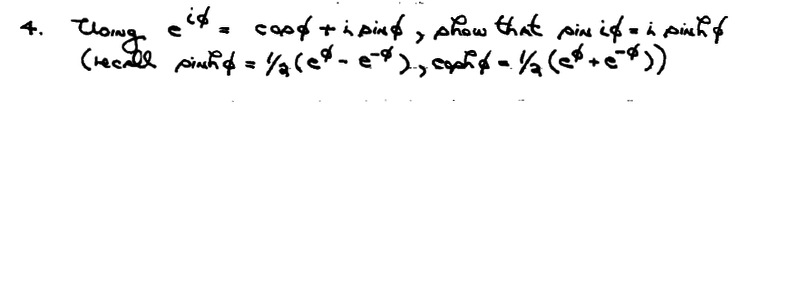 4. Using e^{iϕ} = cosϕ + i sinϕ, show that sin iϕ = i sinhϕ
(recall sinhϕ = 1/2(e^ϕ - e^{-ϕ}), coshϕ = 1/2(e^ϕ + e^{-ϕ}))